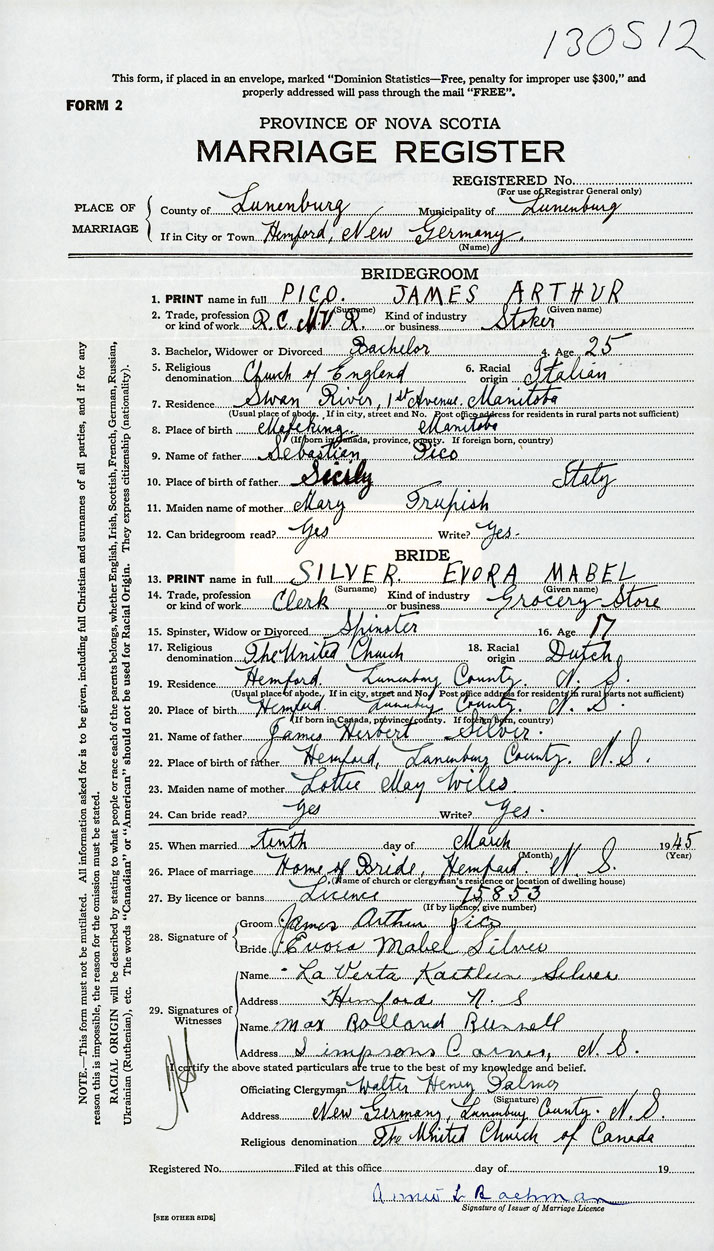 130512
This form, if placed in an envelope, marked “Dominion Statistics—Free, penalty for improper use $300,” and
properly addressed will pass through the mail “FREE”.
FORM 2
PROVINCE OF NOVA SCOTIA
MARRIAGE REGISTER
REGISTERED No.
(For use of Registrar General only)
PLACE OF MARRIAGE
County of Lunenburg Municipality of Lunenburg
If in City or Town Hemford, New Germany.
(Name)
BRIDEGROOM
1. PRINT name in full PICO. JAMES ARTHUR
(Surname) (Given name)
2. Trade, profession or kind of work R.C.N.V.R. Kind of industry or business Stoker
3. Bachelor, Widower or Divorced Bachelor 4. Age 25
5. Religious denomination Church of England 6. Racial origin Italian
7. Residence Swan River, 1st Avenue. Manitoba
(Usual place of abode. If in city, street and No. Post office address for residents in rural parts not sufficient)
8. Place of birth Mafeking. Manitoba
(If born in Canada, province, county. If foreign born, country)
9. Name of father Sebastian Pico
10. Place of birth of father Sicily Italy
11. Maiden name of mother Mary Trupish
12. Can bridegroom read? Yes Write? Yes.
BRIDE
13. PRINT name in full SILVER. EVORA MABEL
(Surname) (Given name)
14. Trade, profession or kind of work Clerk Kind of industry or business Grocery Store
15. Spinster, Widow or Divorced Spinster 16. Age 17
17. Religious denomination The United Church 18. Racial origin Dutch
19. Residence Hemford Lunenburg County. N. S.
(Usual place of abode. If in city, street and No. Post office address for residents in rural parts not sufficient)
20. Place of birth Hemford Lunenburg County. N. S.
(If born in Canada, province, county. If foreign born, country)
21. Name of father James Herbert Silver.
22. Place of birth of father Hemford, Lunenburg County. N. S.
23. Maiden name of mother Lottie May Wiles.
24. Can bride read? Yes Write? Yes.
25. When married tenth day of March 1945
(Month) (Year)
26. Place of marriage Home of Bride, Hemford. N. S.
(Name of church or clergyman's residence or location of dwelling house)
27. By licence or banns Licence 75853
(If by licence, give number)
28. Signature of
Groom James Arthur Pico
Bride Evora Mabel Silver
29. Signatures of Witnesses
Name La Verta Kathleen Silver
Address Hemford N. S
Name Max Rolland Russell
Address Simpsons Corner, N. S.
I certify the above stated particulars are true to the best of my knowledge and belief.
Officiating Clergyman Walter Henry Palmer
(Signature)
Address New Germany, Lunenburg County. N. S.
Religious denomination The United Church of Canada
Registered No. Filed at this office day of 19
L Bachman
Signature of Issuer of Marriage Licence
[SEE OTHER SIDE]
NOTE.—This form must not be mutilated. All information asked for is to be given, including full Christian and surnames of all parties, and if for any
reason this is impossible, the reason for the omission must be stated.
RACIAL ORIGIN will be described by stating to what people or race each of the parents belongs, whether English, Irish, Scottish, French, German, Russian,
Ukrainian (Ruthenian), etc. The words “Canadian” or “American” should not be used for Racial Origin. They express citizenship (nationality).